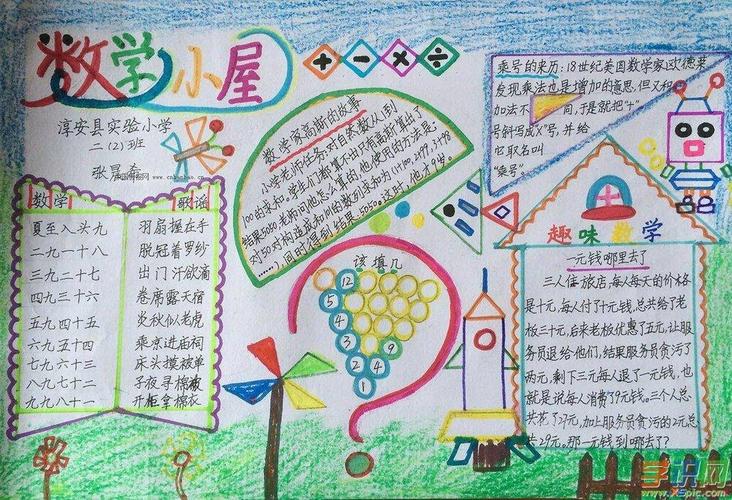 数学小屋
淳安县实验小学
二(2)班
数学 歌谣
夏至入头九 羽扇握在手
二九一十八 脱冠着罗纱
三九二十七 出门汗欲滴
四九三十六 卷席露天宿
五九四十五 炎秋似老虎
六九五十四 乘京进庙祠
七九六十三 床头摸被单
八九七十二 子夜寻棉被
九九八十一 开柜拿棉衣
+ - × ÷
数学家高斯的故事
小学老师任务:对自然数从1到
100的求和。学生们都算不出只有高斯算出了
结果5050老师问他怎么算的,他使用的方法是:
对50对构造成和101的数列求和为(1+100,2+99,3+98
……),同时得到结果:5050。这时,他才9岁。
该填几
12
5
4 9
2 4
1
乘号的来历:18世纪美国数学家欧德莱
发现乘法也是增加的意思,但又和
加法不 同,于是就把"+"
号斜写成"X"号,并给
它取名叫
"乘号"。
趣味数学
一元钱哪里去了
三人住旅店,每人每天的价格
是十元,每人付了十元钱,总共给了老
板三十元,后来老板优惠了五元,让服
务员退给他们,结果服务员贪污了
两元,剩下三元每人退了一元钱,也
就是说每人消费了9元钱。三个人总
共花了27元,加上服务员贪污的2元总
共29元。那一元钱到哪去了?
学识网
www.xspic.com